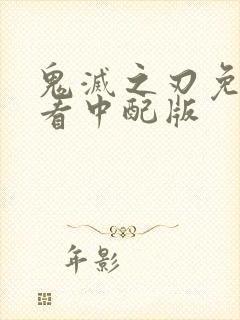 鬼滅之刃免
看中配版
年影